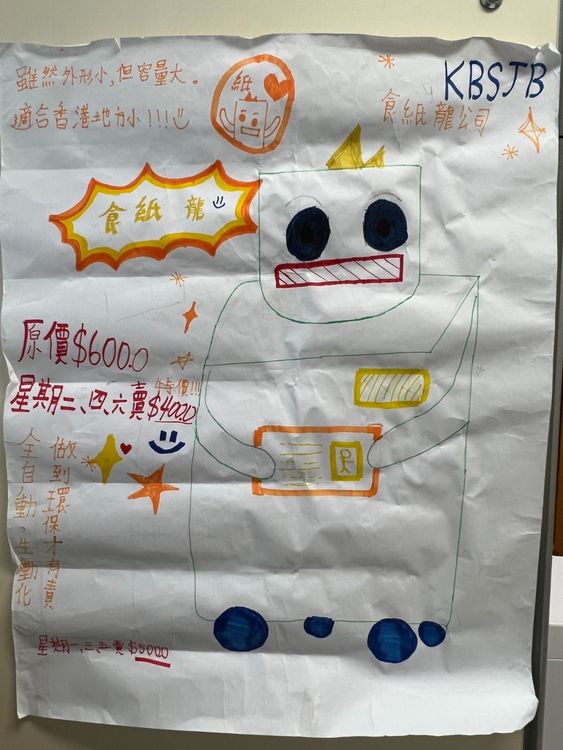 雖然外形小,但容量大。
適合香港地方小!!!
紙
KBSJB
食紙龍公司
食紙龍
原價$600.0
特價!!!
星期二、四、六賣$400.0
做到環保才有責
全自動、生動化
星期一、三、五賣$500.0